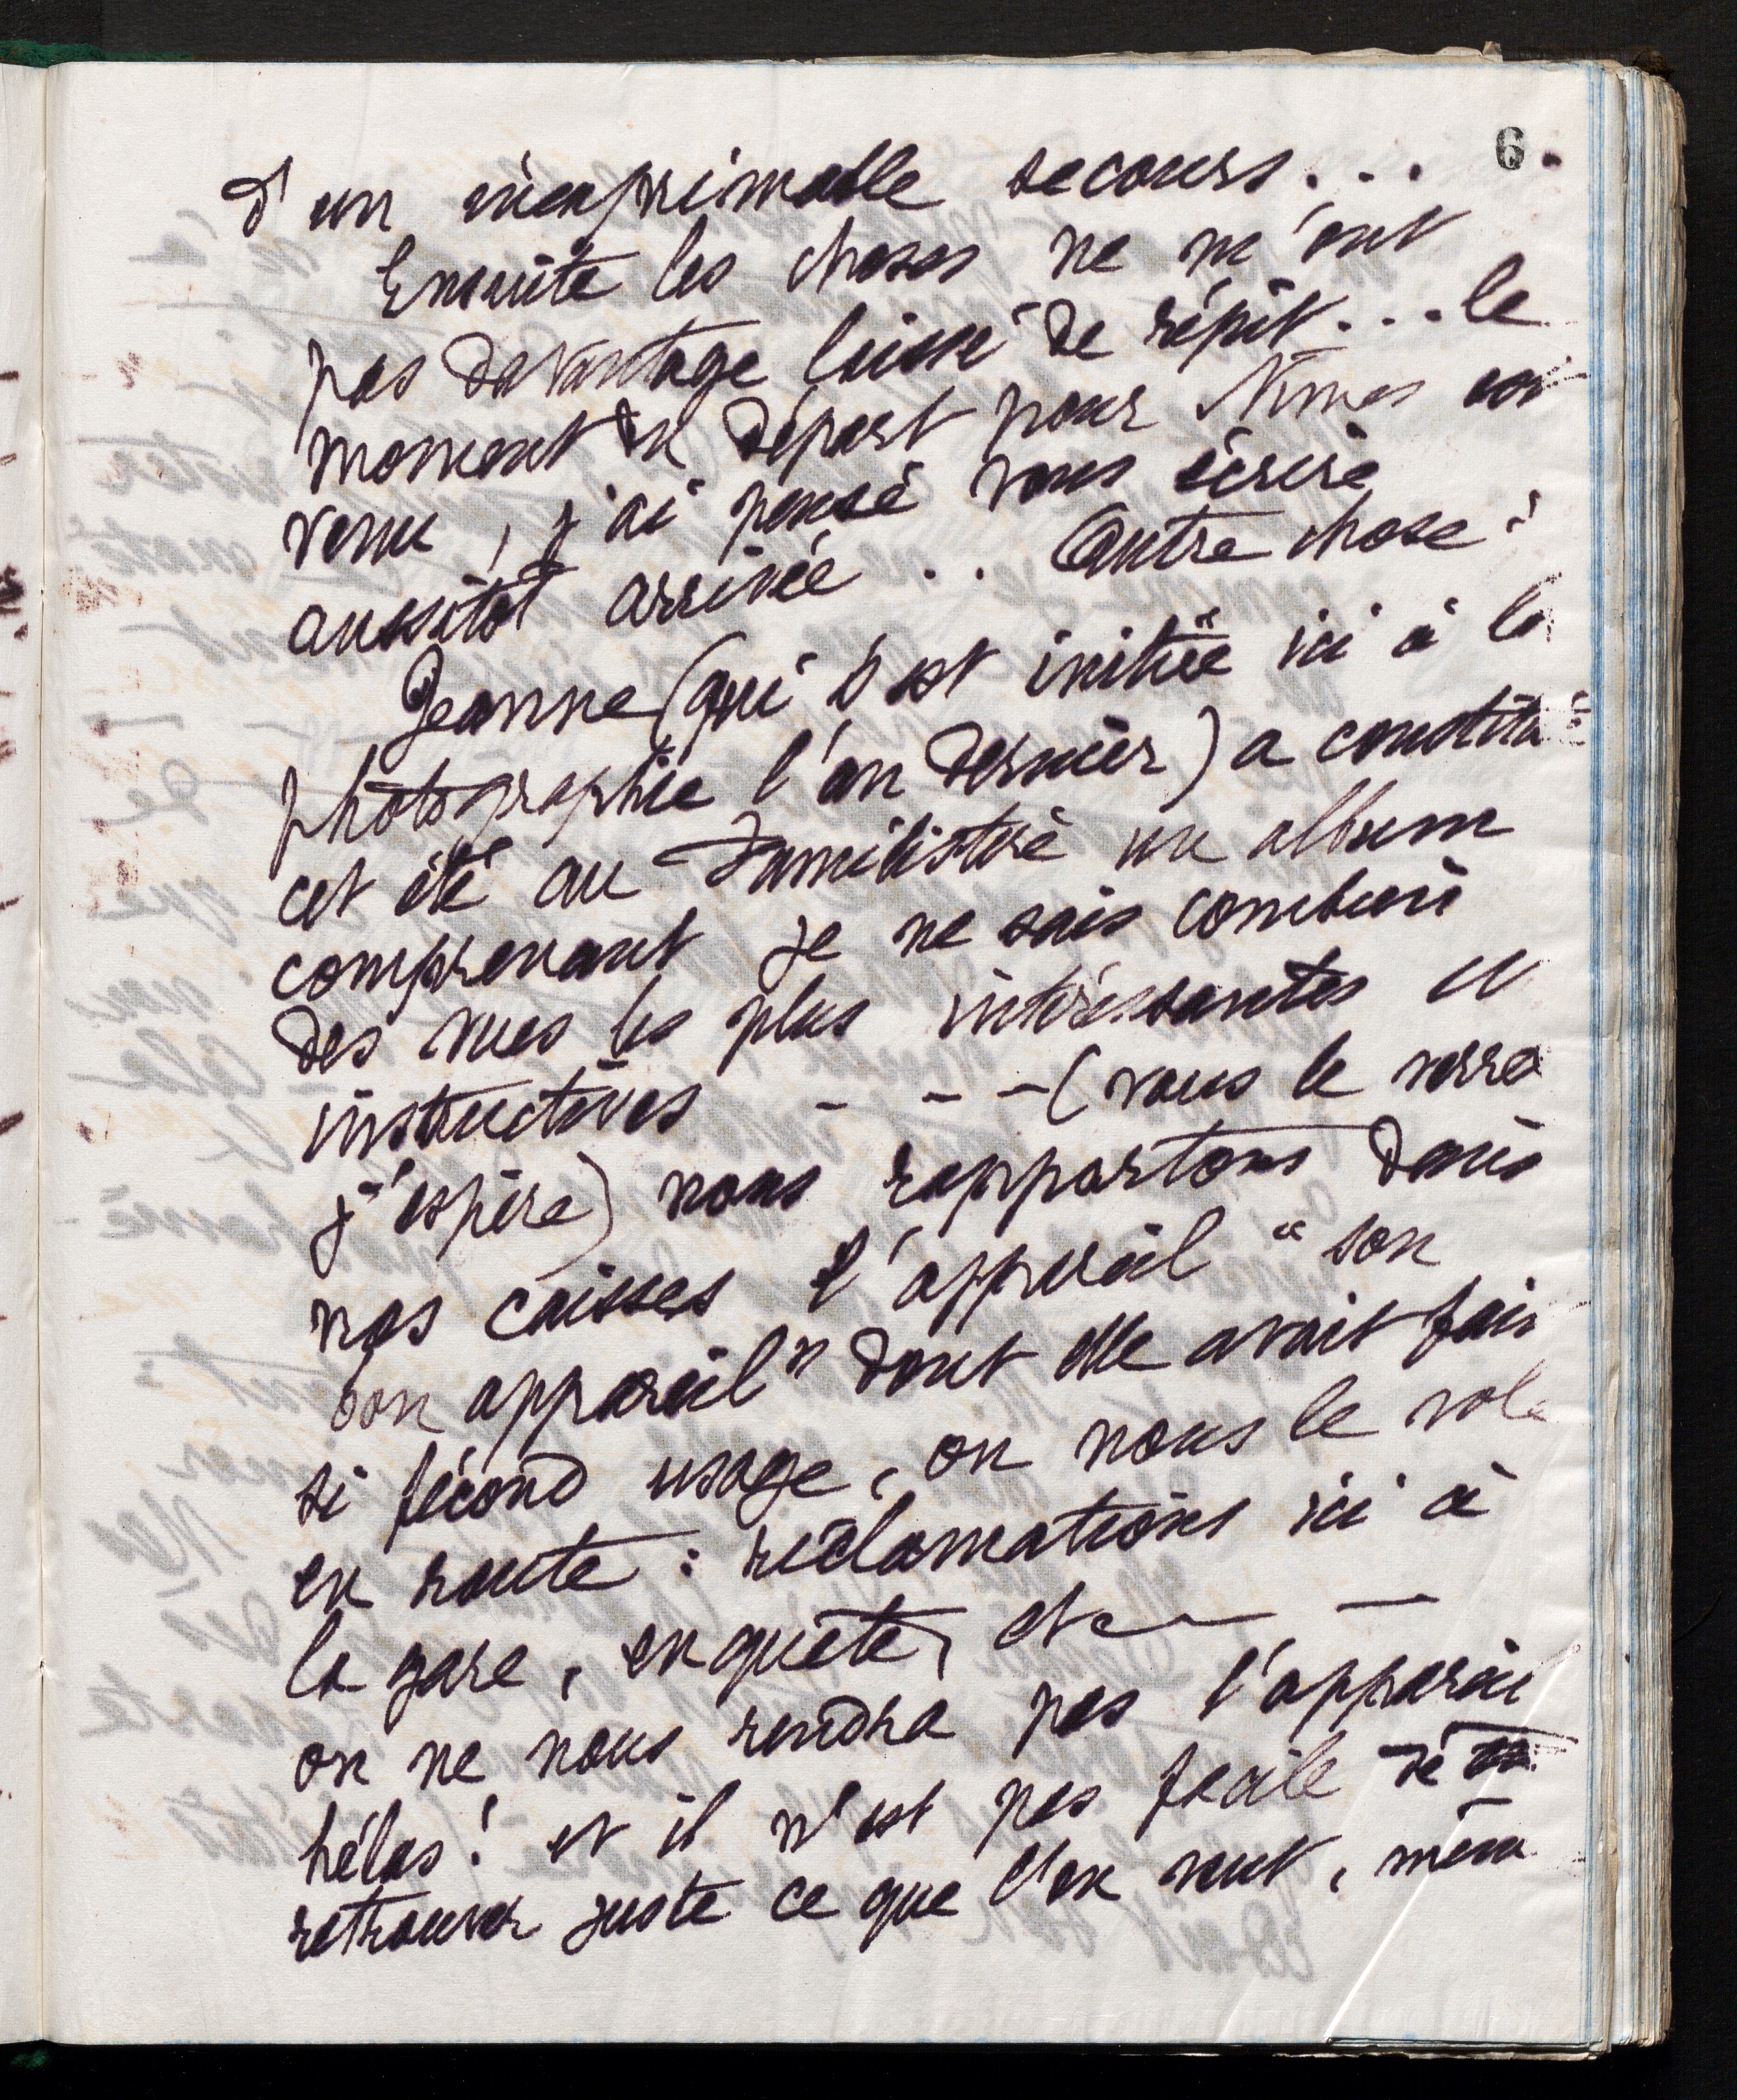 6.
d'un inexprimable secours...
Ensuite les choses ne m'ont
pas davantage laissé de répit... le
moment du départ pour Nîmes
venu, j'ai pensé vous écrire
aussitôt arrivée .. Autre chose :
Jeanne (qui s'est initiée ici à la
photographie l'an dernier) a constitu
cet été au Familistère un album
comprenant je ne sais combien
des vues les plus intéressantes et
instructives - - - (vous le verrez
j'espère) nous rapportons dans
nos caisses l'appareil "son
bon appareil" dont elle avait fait
si fécond usage, on nous le vole
en route : réclamations ici à
la gare, enquête, etc — —
on ne nous rendra pas l'appareil
hélas! et il n'est pas facile de
retrouver juste ce que l'on veut, même